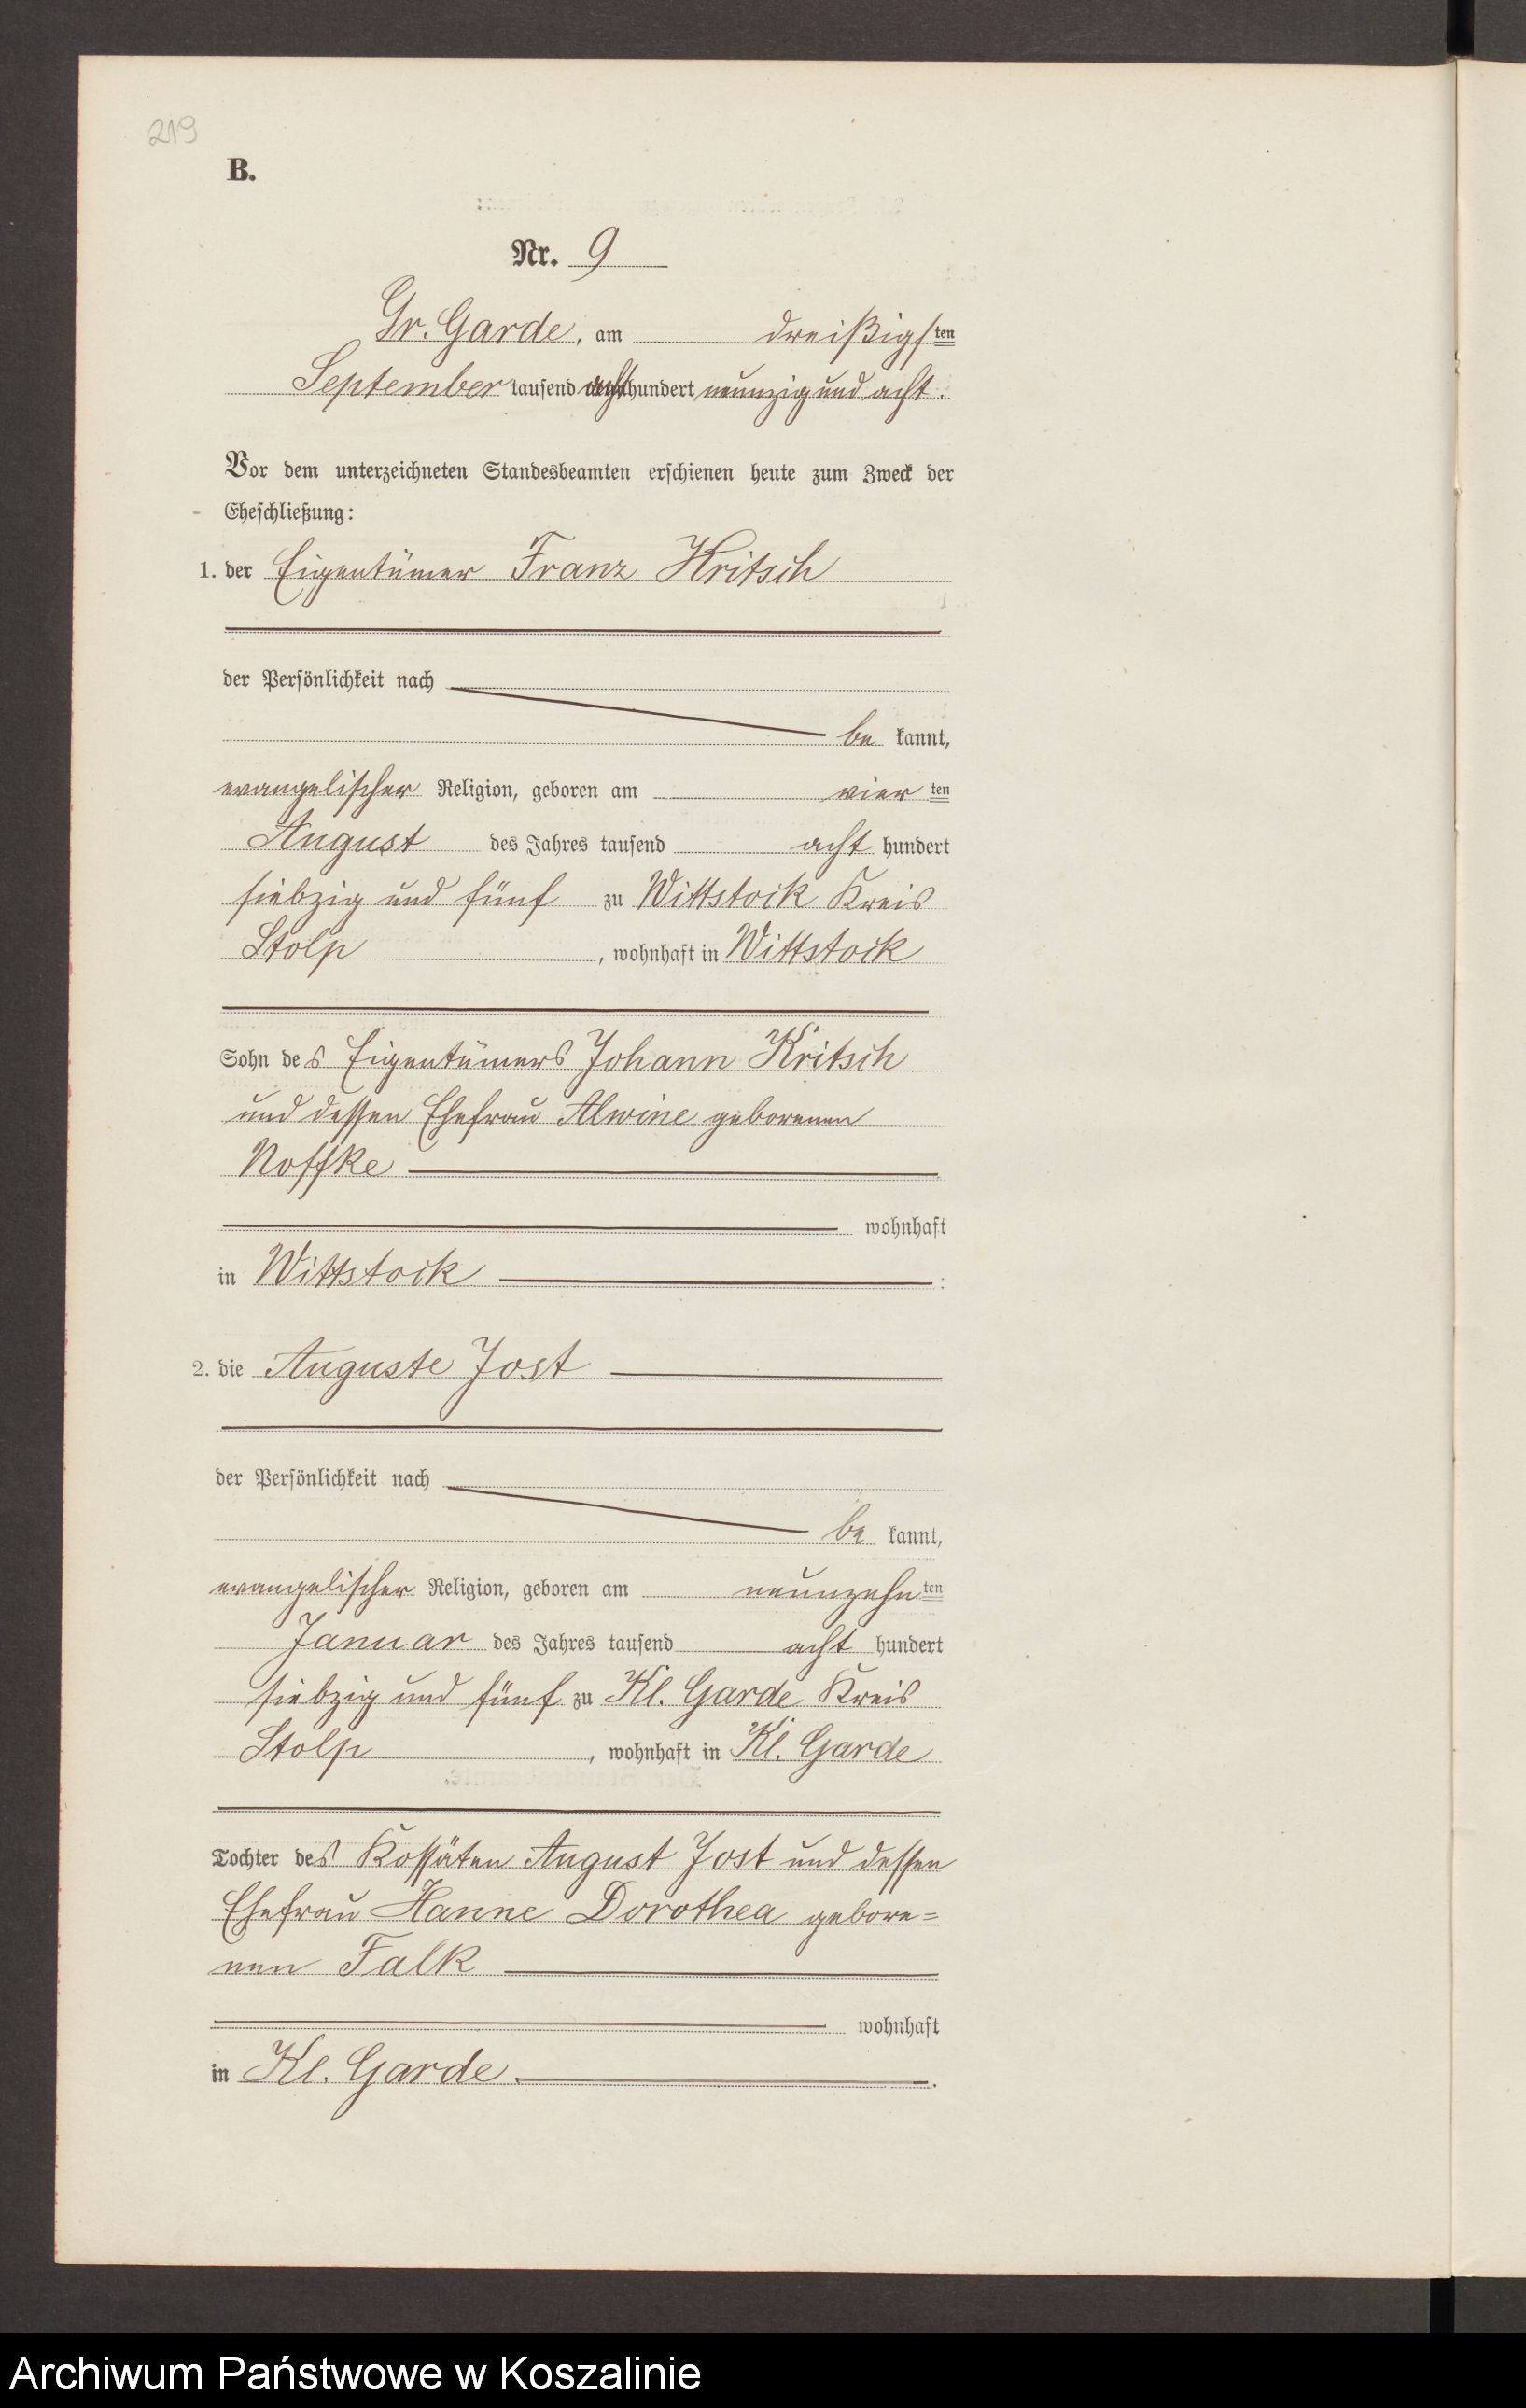 219
B.
Nr. 9
Gr. Garde, am dreißigsten
September tausend achthundert neunzig und acht.
Vor dem unterzeichneten Standesbeamten erschienen heute zum Zweck der
Eheschließung:
1. der Eigentümer Franz Kritsch
der Persönlichkeit nach
be kannt,
evangelischer Religion, geboren am vier ten
August des Jahres tausend acht hundert
siebzig und fünf zu Wittstock Kreis
Stolp, wohnhaft in Wittstock
Sohn des Eigentümers Johann Kritsch
und dessen Ehefrau Alwine geborenen
Noffke
wohnhaft
in Wittstock :
2. die Auguste Jost
der Persönlichkeit nach
be kannt,
evangelischer Religion, geboren am neunzehnten
Januar des Jahres tausend acht hundert
siebzig und fünf zu Kl. Garde Kreis
Stolp, wohnhaft in Kl. Garde
Tochter des Kossäten August Jost und dessen
Ehefrau Hanne Dorothea gebore=
nen Falk
wohnhaft
in Kl. Garde.
Archiwum Państwowe w Koszalinie